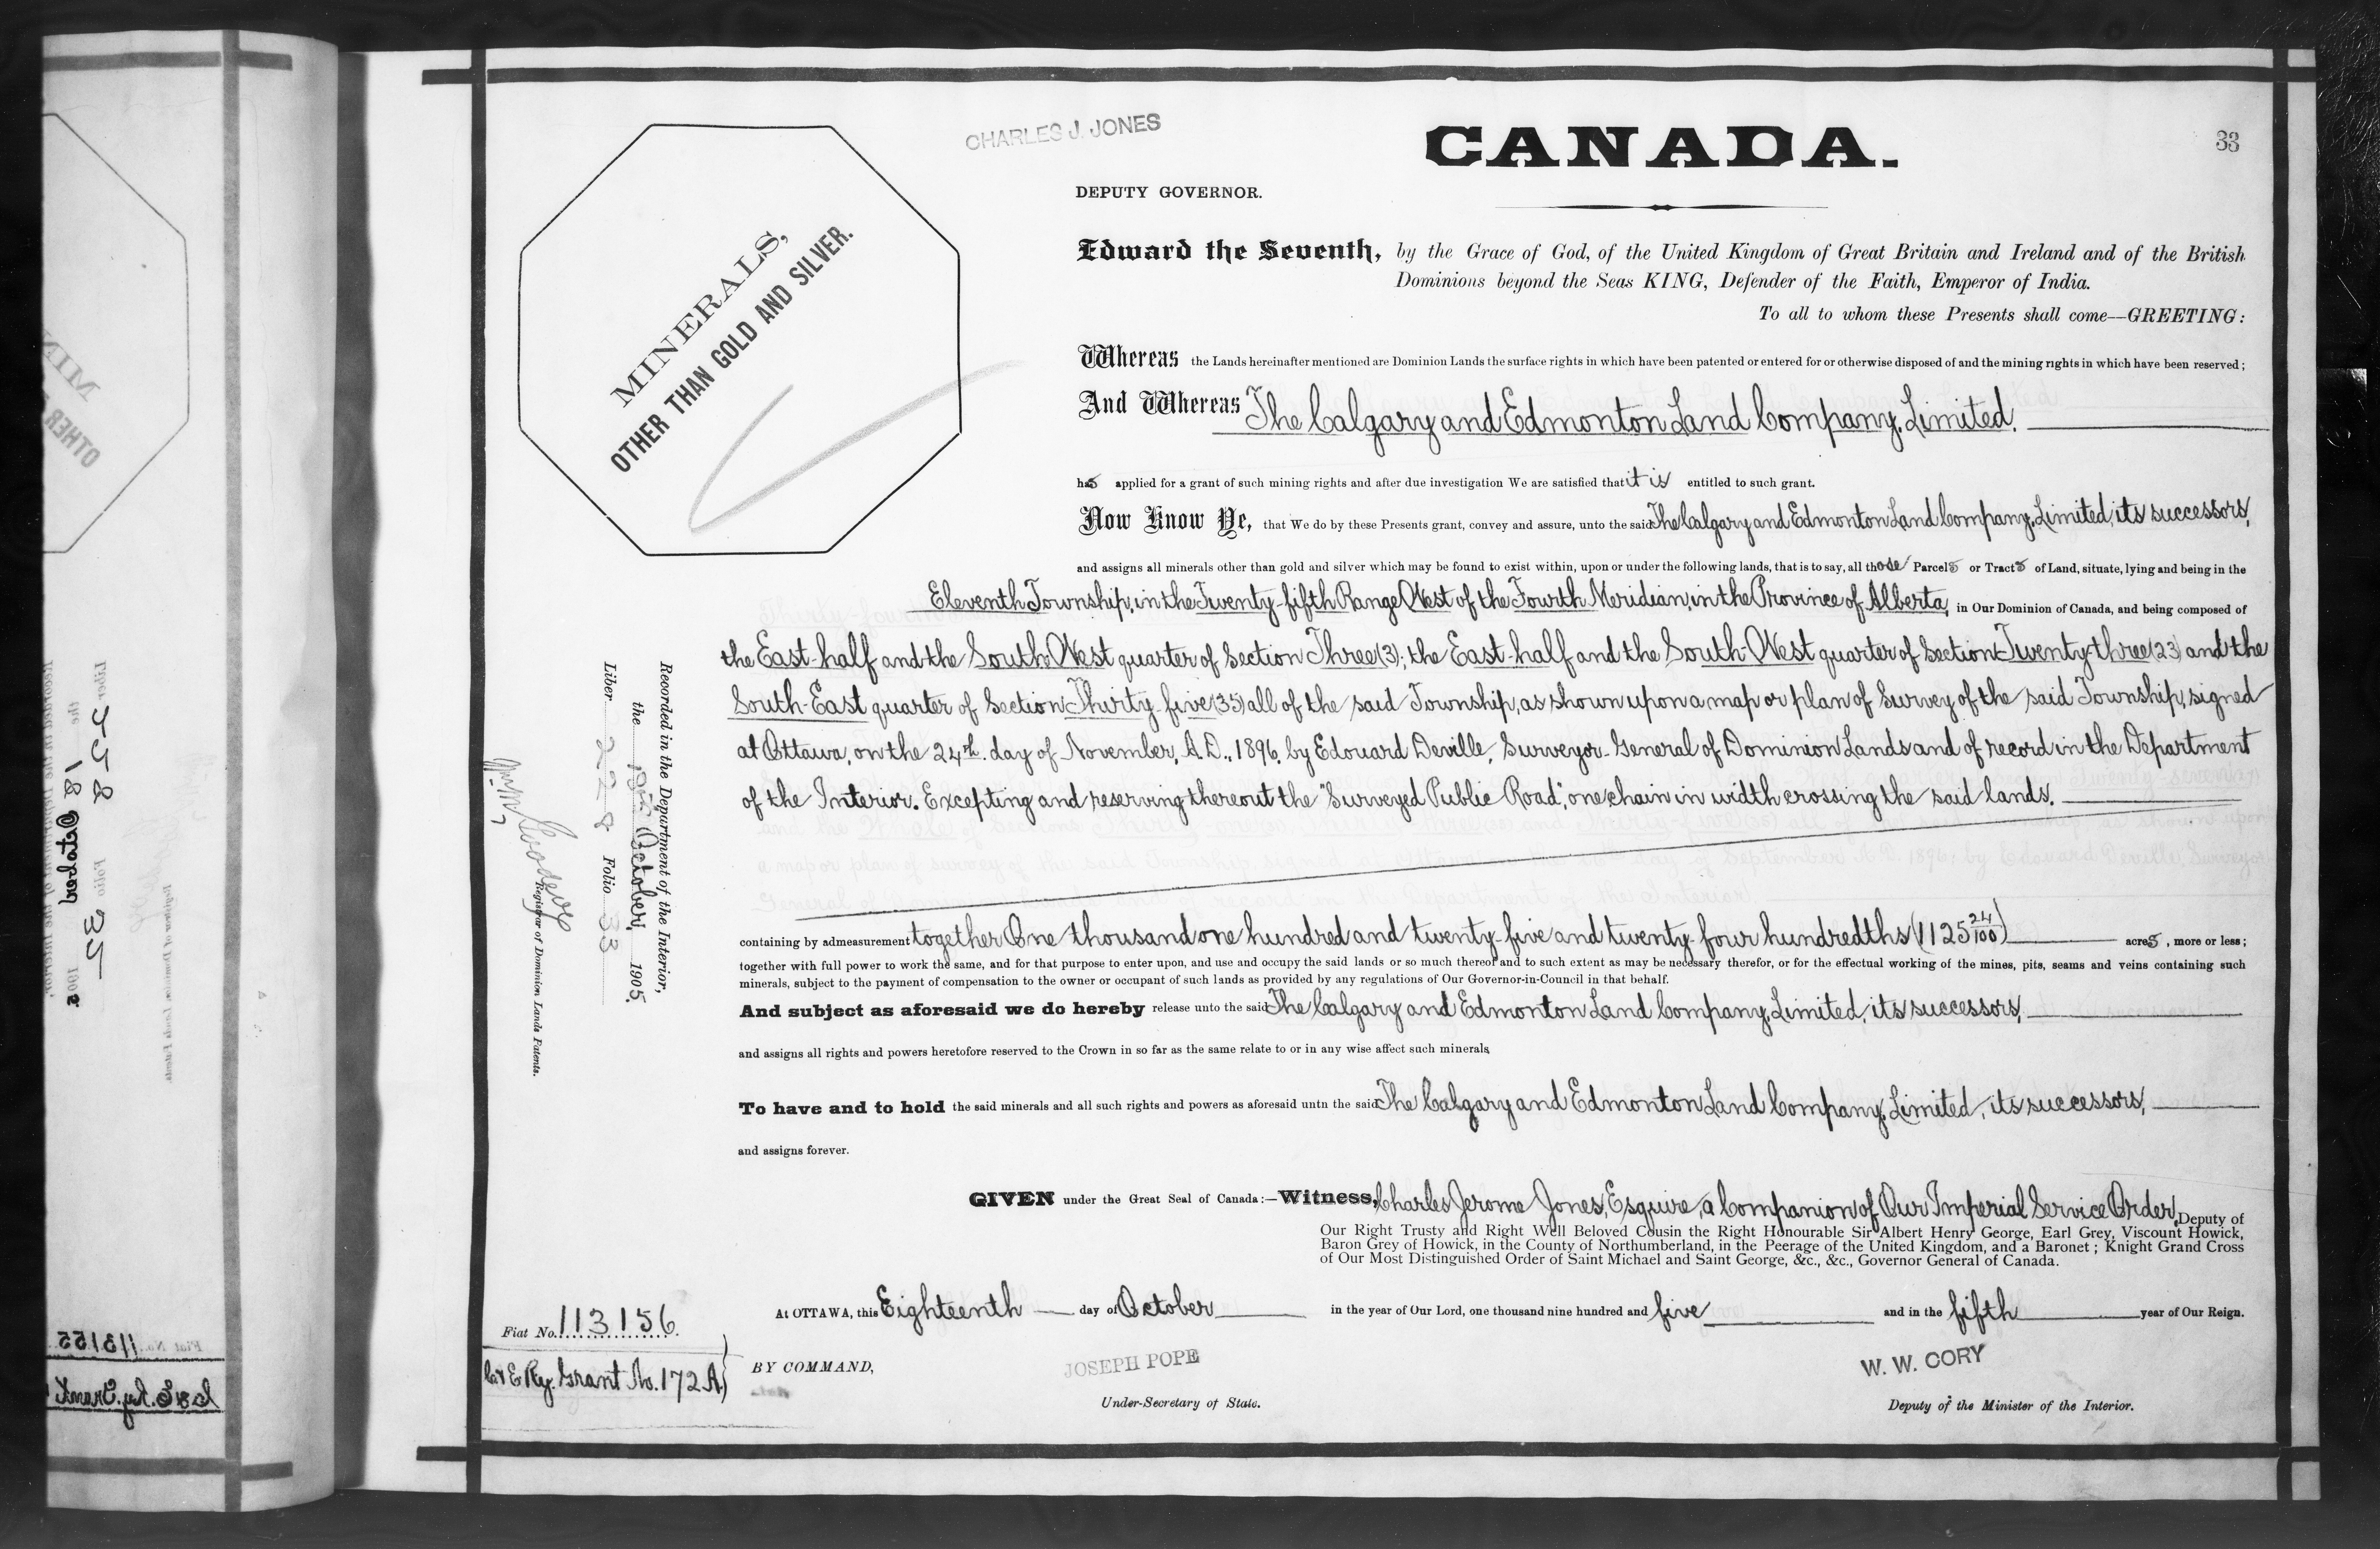 CHARLES J. JONES
CANADA.
33
DEPUTY GOVERNOR.
MINERALS,
OTHER THAN GOLD AND SILVER.
Edward the Seventh, by the Grace of God, of the United Kingdom of Great Britain and Ireland and of the British
Dominions beyond the Seas KING, Defender of the Faith, Emperor of India.
To all to whom these Presents shall come—GREETING:
Whereas the Lands hereinafter mentioned are Dominion Lands the surface rights in which have been patented or entered for or otherwise disposed of and the mining rights in which have been reserved;
And Whereas The Calgary and Edmonton Land Company, Limited.
has applied for a grant of such mining rights and after due investigation We are satisfied that it is entitled to such grant.
Now Know Ye, that We do by these Presents grant, convey and assure, unto the said The Calgary and Edmonton Land Company, Limited, its successors,
and assigns all minerals other than gold and silver which may be found to exist within, upon or under the following lands, that is to say, all those Parcels or Tracts of Land, situate, lying and being in the
Eleventh Township, in the Twenty-fifth Range West of the Fourth Meridian, in the Province of Alberta, in Our Dominion of Canada, and being composed of
the East-half and the South-West quarter of Section Three (3); the East-half and the South-West quarter of Section Twenty-three (23) and the
South-East quarter of Section Thirty-five (35) all of the said Township, as shown upon a map or plan of Survey of the said Township, signed
at Ottawa, on the 24th. day of November, A.D., 1896, by Edouard Deville, Surveyor-General of Dominion Lands and of record in the Department
of the Interior. Excepting and reserving thereout the "Surveyed Public Road", one chain in width crossing the said lands.
containing by admeasurement together One thousand one hundred and twenty-five and twenty-four hundredths (1125 24/100) acres, more or less;
together with full power to work the same, and for that purpose to enter upon, and use and occupy the said lands or so much thereof and to such extent as may be necessary therefor, or for the effectual working of the mines, pits, seams and veins containing such
minerals, subject to the payment of compensation to the owner or occupant of such lands as provided by any regulations of Our Governor-in-Council in that behalf.
And subject as aforesaid we do hereby release unto the said The Calgary and Edmonton Land Company, Limited, its successors,
and assigns all rights and powers heretofore reserved to the Crown in so far as the same relate to or in any wise affect such minerals,
To have and to hold the said minerals and all such rights and powers as aforesaid untn the said The Calgary and Edmonton Land Company, Limited, its successors,
and assigns forever.
GIVEN under the Great Seal of Canada:—Witness, Charles Jerome Jones, Esquire, a Companion of Our Imperial Service Order, Deputy of
Our Right Trusty and Right Well Beloved Cousin the Right Honourable Sir Albert Henry George, Earl Grey, Viscount Howick,
Baron Grey of Howick, in the County of Northumberland, in the Peerage of the United Kingdom, and a Baronet; Knight Grand Cross
of Our Most Distinguished Order of Saint Michael and Saint George, &c., &c., Governor General of Canada.
At OTTAWA, this Eighteenth day of October in the year of Our Lord, one thousand nine hundred and five and in the fifth year of Our Reign.
BY COMMAND,
JOSEPH POPE
Under-Secretary of State.
W. W. CORY
Deputy of the Minister of the Interior.
Recorded in the Department of the Interior,
the 18th October 1905.
Liber 228 Folio 33
Registrar of Dominion Lands Patents.
Fiat No. 113156.
C. & E. Ry. Grant No. 172 A